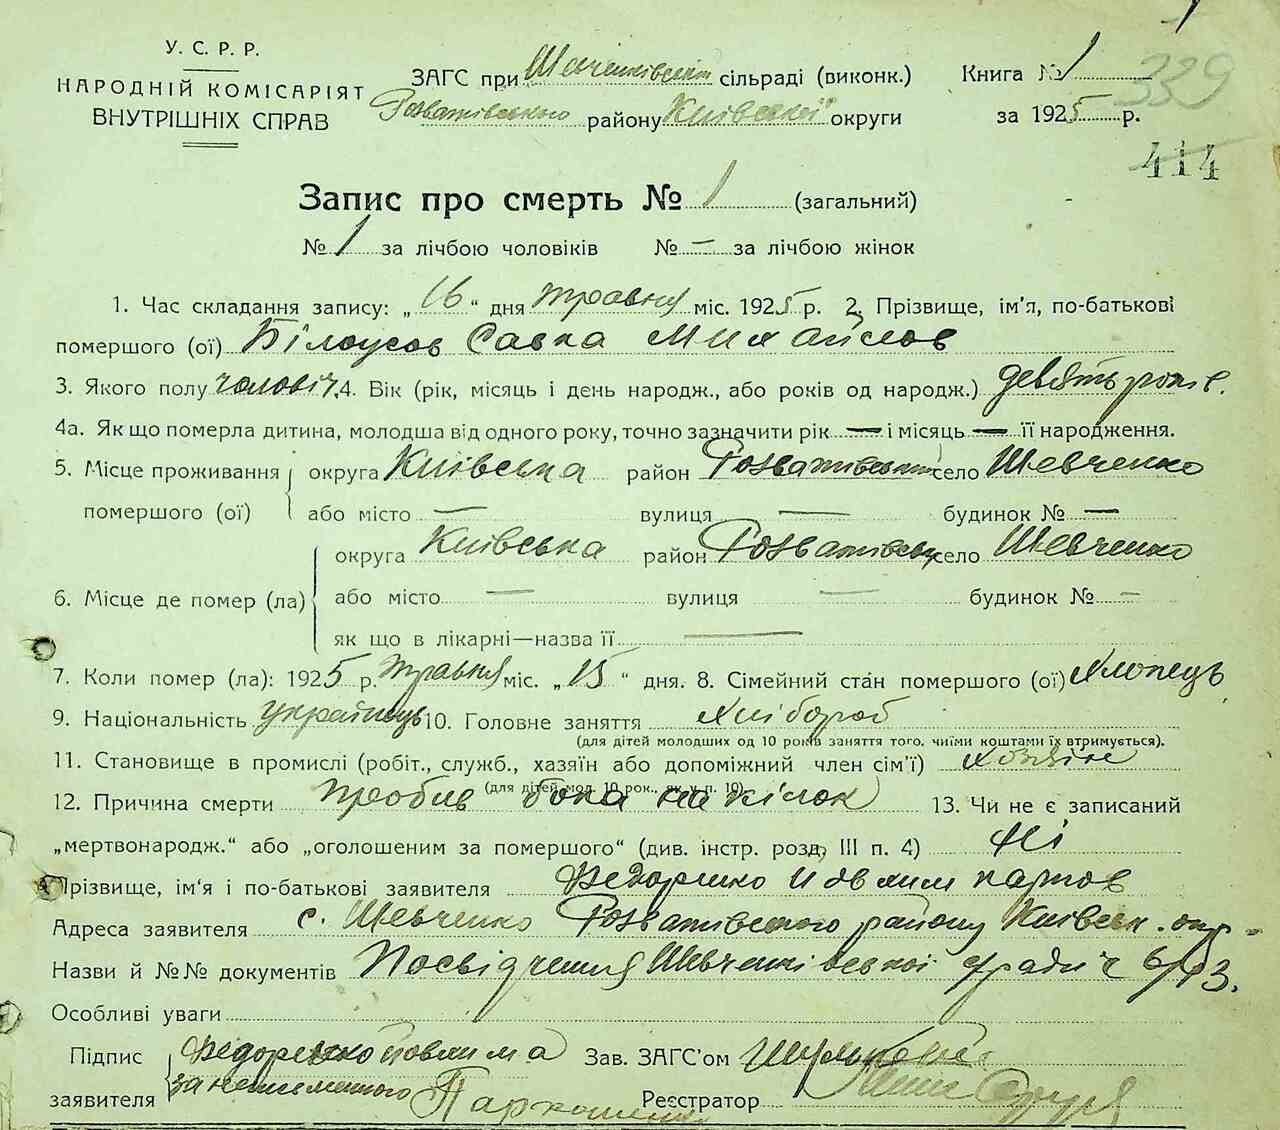 У. С. Р. Р.
НАРОДНІЙ КОМІСАРІЯТ
ВНУТРІШНІХ СПРАВ
ЗАГС при Шевченківській сільраді (виконк.)
Розважівського району Київської округи
Книга № 1
за 1925 р.
339
414
Запис про смерть № 1 (загальний)
№ 1 за лічбою чоловіків № — за лічбою жінок
1. Час складання запису: „16“ дня травня міс. 1925 р. 2. Прізвище, ім'я, по-батькові
помершого (ої) Білоусов Савка Михайлов
3. Якого полу чоловіч. 4. Вік (рік, місяць і день народж., або років од народж.) девять років.
4а. Як що померла дитина, молодша від одного року, точно зазначити рік — і місяць — її народження.
5. Місце проживання округа Київська район Розважівський село Шевченко
помершого (ої) або місто — вулиця — будинок № —
округа Київська район Розважівськ село Шевченко
6. Місце де помер (ла) або місто — вулиця — будинок № —
як що в лікарні—назва її —
7. Коли помер (ла): 1925 р. травня міс. „15“ дня. 8. Сімейний стан помершого (ої) Хлопець
9. Національність українець 10. Головне заняття Хлібороб
(для дітей молодших од 10 років заняття того, чиїми коштами їх втримується).
11. Становище в промислі (робіт., служб., хазяїн або допоміжний член сім'ї) хозяїн
(для дітей мол. 10 рок., як у п. 10)
12. Причина смерти пробив бока на кілок 13. Чи не є записаний
„мертвонародж.“ або „оголошеним за помершого“ (див. інстр. розд. III п. 4) Ні
Прізвище, ім'я і по-батькові заявителя Федоренко Йовхим
Адреса заявителя с. Шевченко Розважівського району Київськ. окр.
Назви й №№ документів Посвідчення Шевченківської с/ради ч 6/13.
Особливі уваги
Підпис Федоренко Йовхима Зав. ЗАГС'ом
заявителя за неписьменного Реєстратор